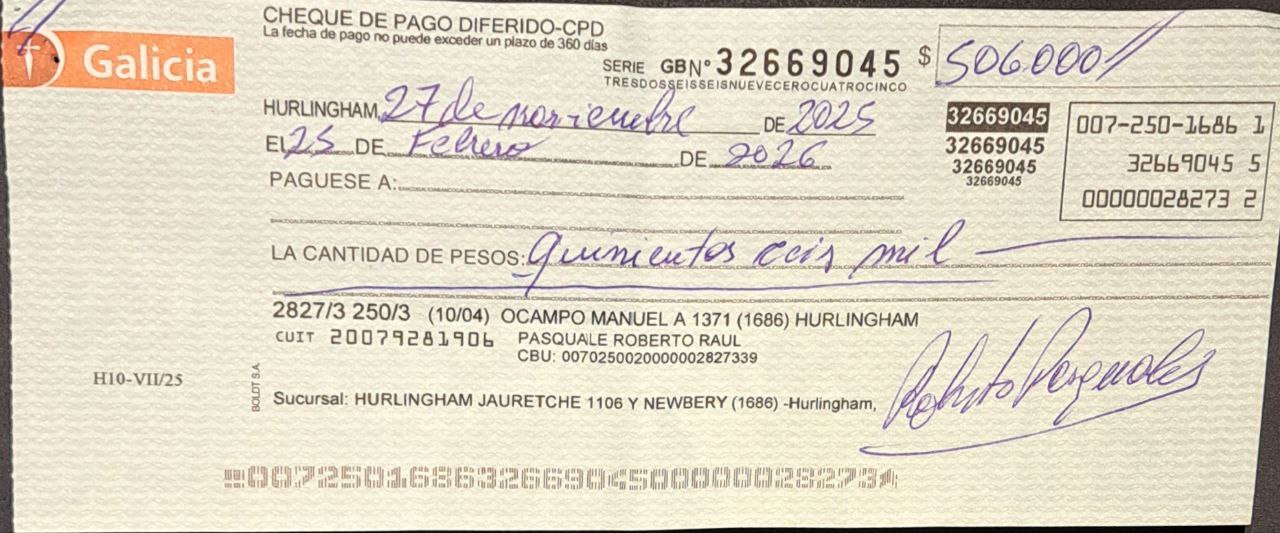 CHEQUE DE PAGO DIFERIDO-CPD
La fecha de pago no puede exceder un plazo de 360 días
Galicia
SERIE GB Nº 32669045 $ 506.000//
TRESDOSSEISSEISNUEVECEROCUATROCINCO
HURLINGHAM, 27 de noviembre DE 2025
El 25 DE Febrero DE 2026
32669045
32669045
32669045
32669045
007-250-1686 1
32669045 5
00000028273 2
PAGUESE A:
LA CANTIDAD DE PESOS: quinientos ceis mil
2827/3 250/3 (10/04) OCAMPO MANUEL A 1371 (1686) HURLINGHAM
CUIT 20079281906 PASQUALE ROBERTO RAUL
CBU: 0070250020000002827339
H10-VII/25
BOLDT S.A.
Sucursal: HURLINGHAM JAURETCHE 1106 Y NEWBERY (1686) -Hurlingham,
00725016863266904500000028273